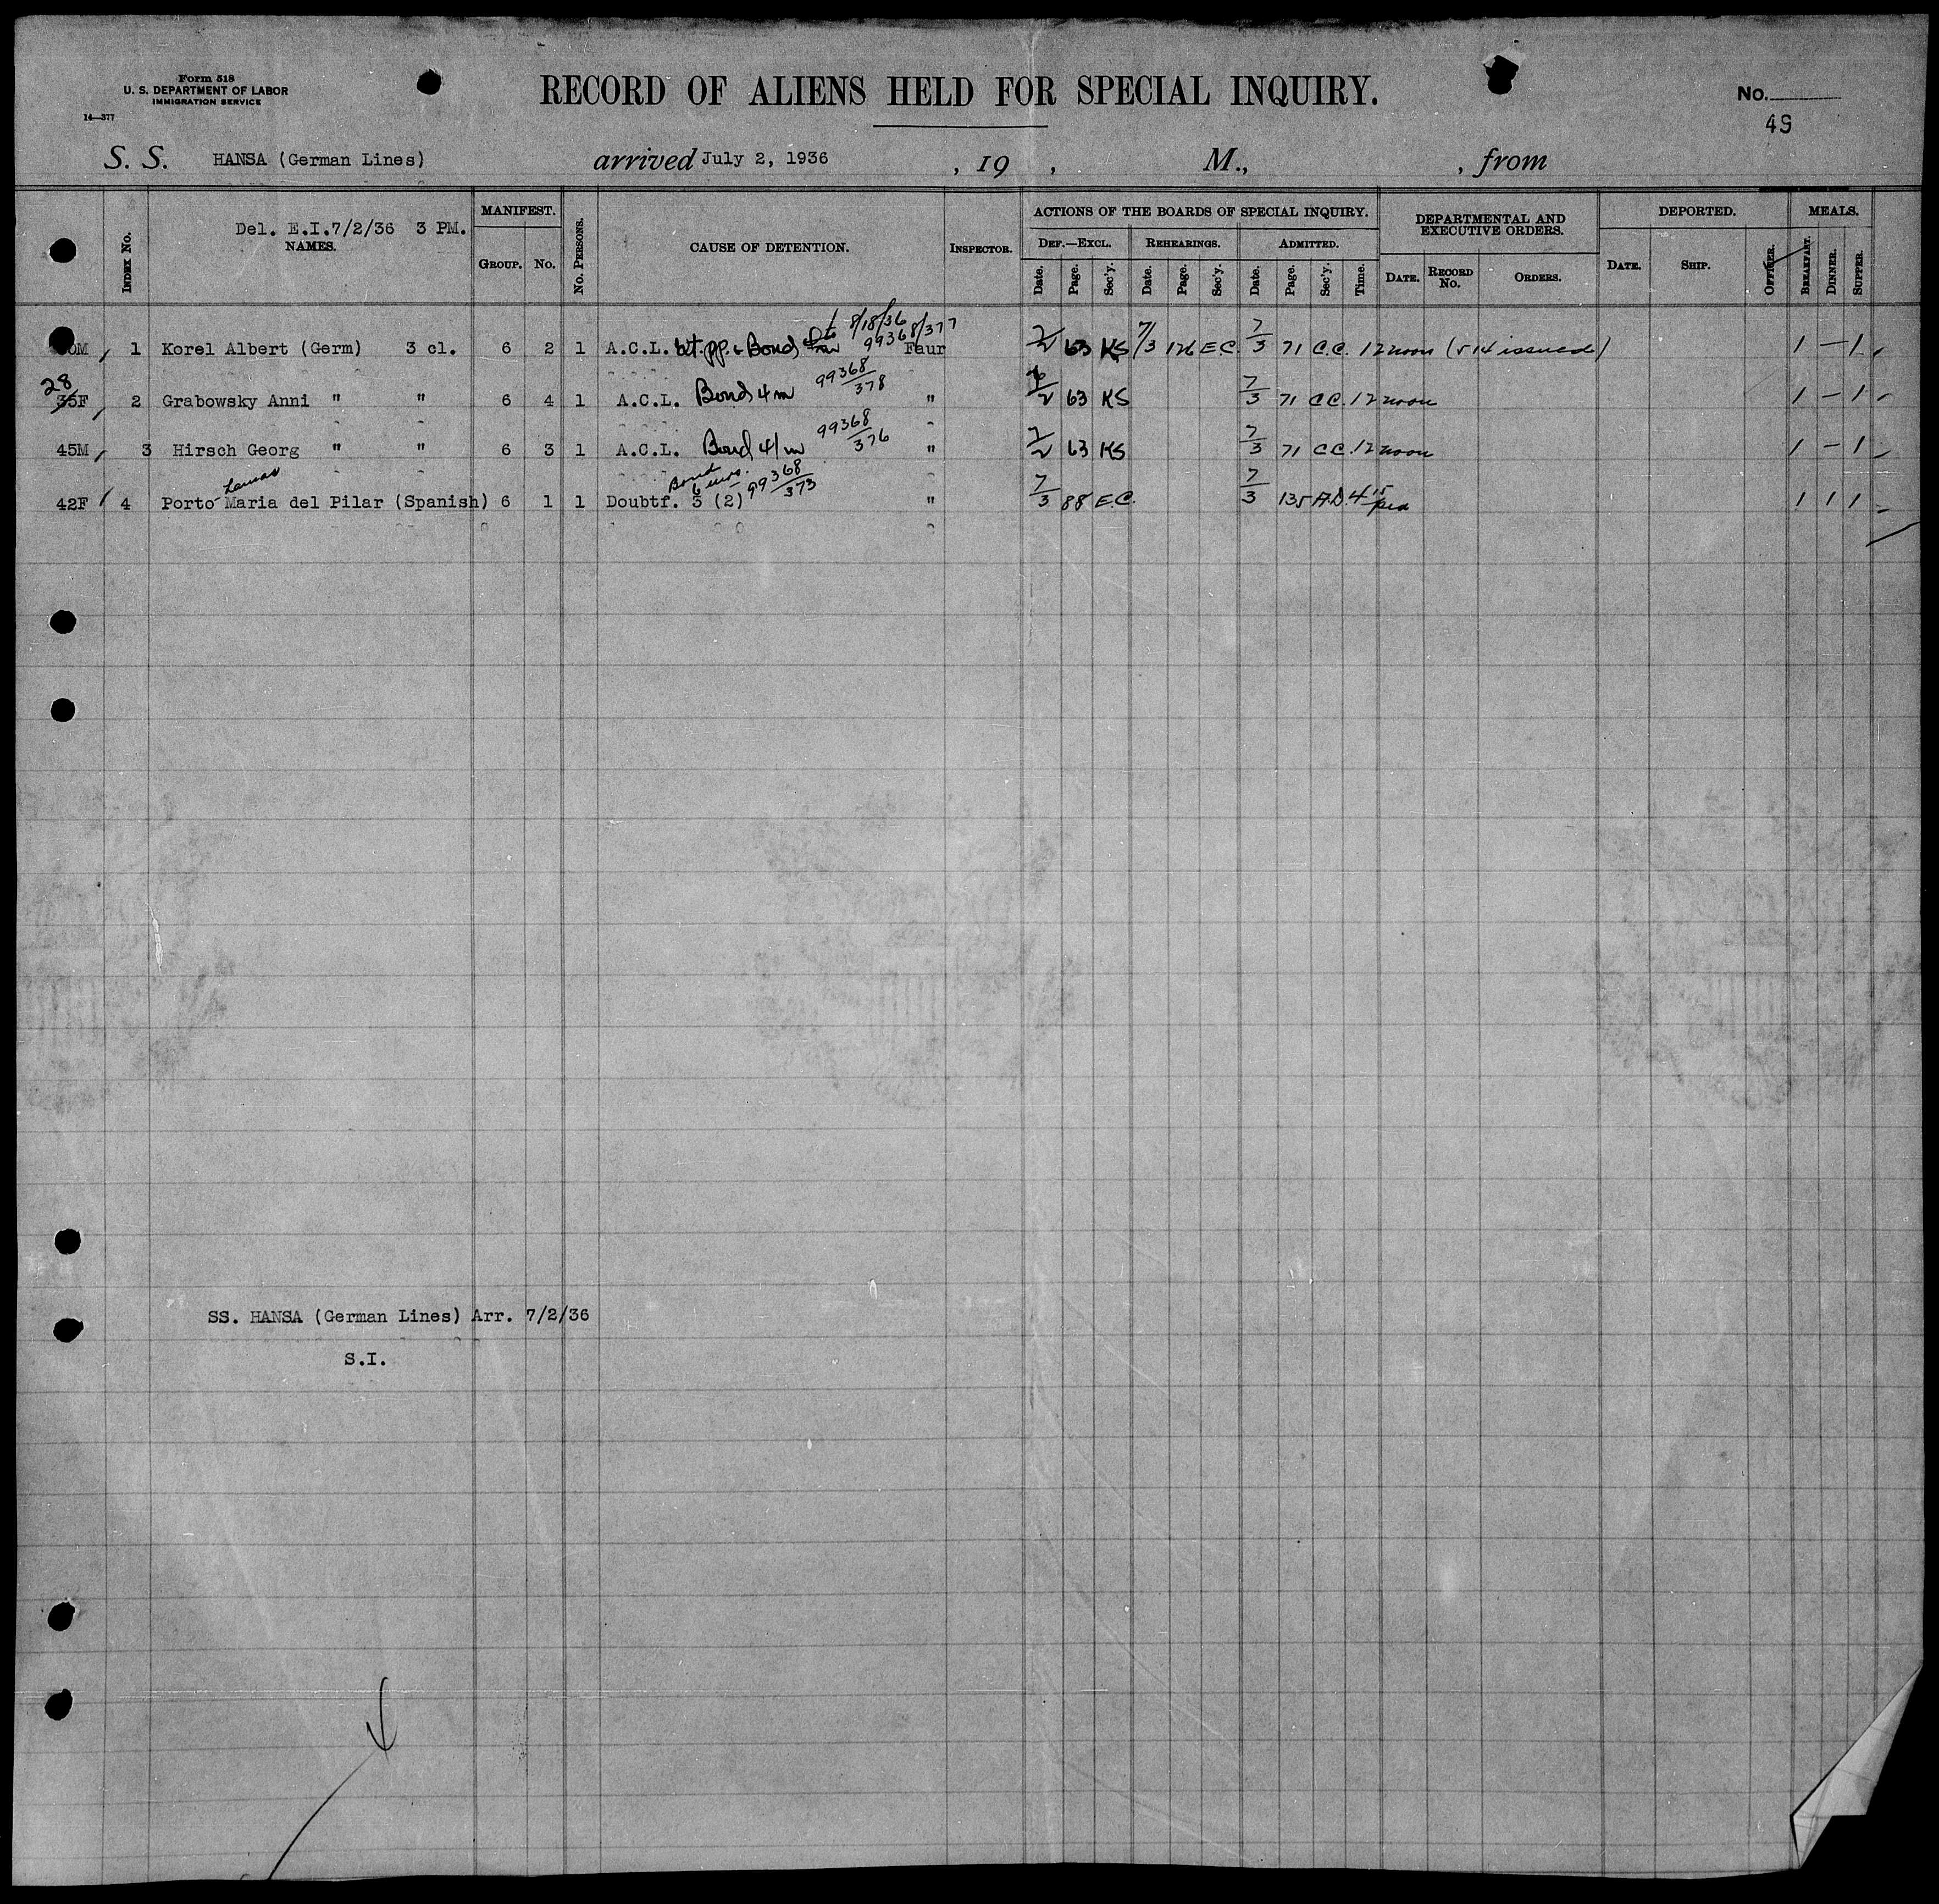 Form 518
U. S. DEPARTMENT OF LABOR
IMMIGRATION SERVICE
14—377
RECORD OF ALIENS HELD FOR SPECIAL INQUIRY.
No.
49
S. S. HANSA (German Lines) arrived July 2, 1936 , 19 , M., , from
Del. E.I.7/2/36 3 PM.
INDEX No. NAMES. MANIFEST. GROUP. No. No. PERSONS. CAUSE OF DETENTION. INSPECTOR.
ACTIONS OF THE BOARDS OF SPECIAL INQUIRY.
DEF.—EXCL. REHEARINGS. ADMITTED.
Date. Page. Sec'y. Date. Page. Sec'y. Date. Page. Sec'y. Time.
DEPARTMENTAL AND EXECUTIVE ORDERS.
DATE. RECORD No. ORDERS.
DEPORTED.
DATE. SHIP. OFFICER.
MEALS.
BREAKFAST. DINNER. SUPPER.
8/18/36
99368/377
0M 1 Korel Albert (Germ) 3 cl. 6 2 1 A.C.L. Bond Faur 7/2 63 KS 7/3 126 E.C. 7/3 71 C.C. 12 noon (514 issued) 1 — 1
28
99368/378
35F 2 Grabowsky Anni " " 6 4 1 A.C.L. Bond 4 m " 7/2 63 KS 7/3 71 C.C. 12 noon 1 — 1
99368/376
45M 3 Hirsch Georg " " 6 3 1 A.C.L. Bond 4/m " 7/2 63 KS 7/3 71 C.C. 12 noon 1 — 1
Bond 6 mos. 99368/373
42F 4 Porto Maria del Pilar (Spanish) 6 1 1 Doubtf. 3 (2) " 7/3 88 E.C. 7/3 135 A.D. 4 15 1 1 1
SS. HANSA (German Lines) Arr. 7/2/36
S.I.